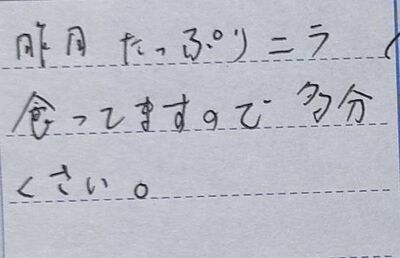 昨日たっぷりニラ
食ってますので多分
くさい。